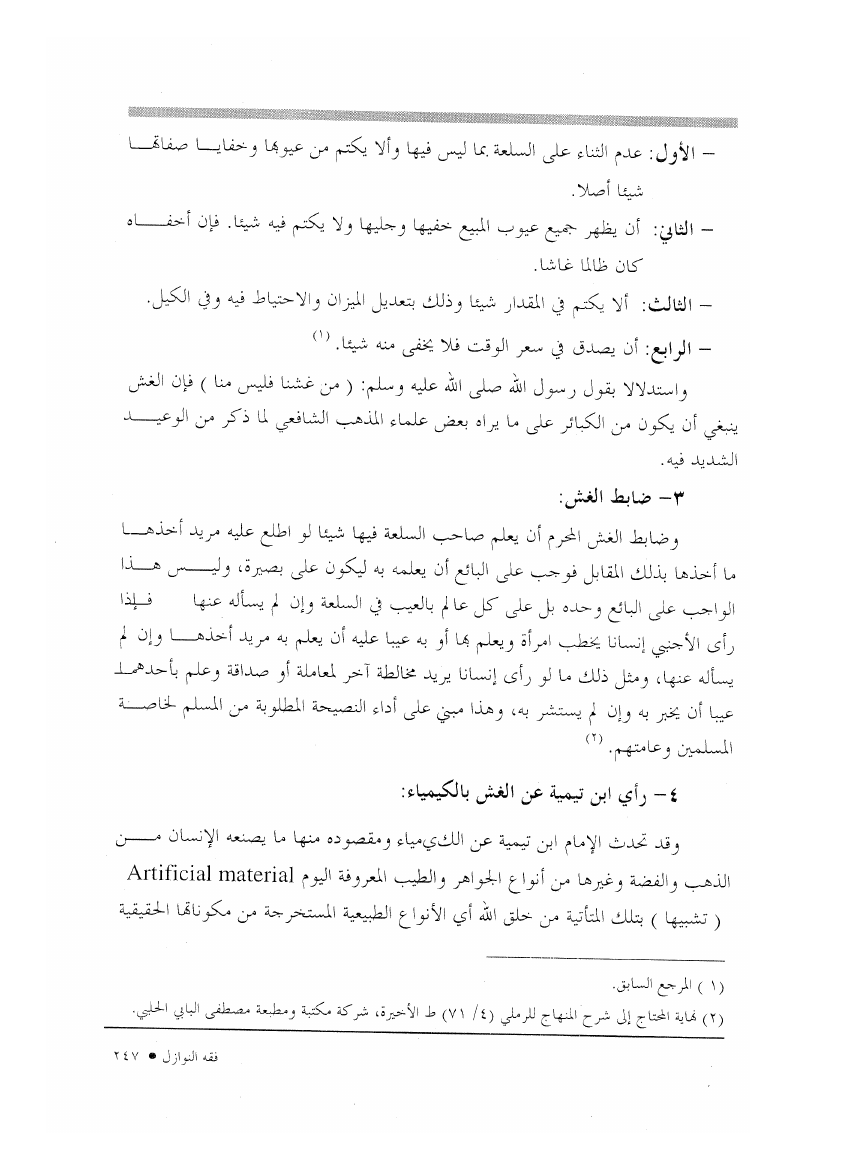 – الأول: عدم الثناء على السلعة بما ليس فيها وألا يكتم من عيوبها وخفايـــا صفاتهـــا
شيئا أصلا.
– الثاني: أن يظهر جميع عيوب المبيع خفيها وجليها ولا يكتم فيه شيئا. فإن أخفـــاه
كان ظالما غاشا.
– الثالث: ألا يكتم في المقدار شيئا وذلك بتعديل الميزان والاحتياط فيه وفي الكيل.
– الرابع: أن يصدق في سعر الوقت فلا يخفى منه شيئا. (١)
واستدلالا بقول رسول الله صلى الله عليه وسلم: ( من غشنا فليس منا ) فإن الغش
ينبغي أن يكون من الكبائر على ما يراه بعض علماء المذهب الشافعي لما ذكر من الوعيـــد
الشديد فيه.
٣– ضابط الغش:
وضابط الغش المحرم أن يعلم صاحب السلعة فيها شيئا لو اطلع عليه مريد أخذهـــا
ما أخذها بذلك المقابل فوجب على البائع أن يعلمه به ليكون على بصيرة، وليـــس هـــذا
الواجب على البائع وحده بل على كل عالم بالعيب في السلعة وإن لم يسأله عنها فـــإذا
رأى الأجنبي إنسانا يخطب امرأة ويعلم بها أو به عيبا عليه أن يعلم به مريد أخذهـــا وإن لم
يسأله عنها، ومثل ذلك ما لو رأى إنسانا يريد مخالطة آخر لمعاملة أو صداقة وعلم بأحدهمـا
عيبا أن يخبر به وإن لم يستشر به، وهذا مبني على أداء النصيحة المطلوبة من المسلم لخاصـــة
المسلمين وعامتهم. (٢)
٤– رأي ابن تيمية عن الغش بالكيمياء:
وقد تحدث الإمام ابن تيمية عن الكيمياء ومقصوده منها ما يصنعه الإنسان مـــن
الذهب والفضة وغيرها من أنواع الجواهر والطيب المعروفة اليوم Artificial material
( تشبيها ) بتلك المتأتية من خلق الله أي الأنواع الطبيعية المستخرجة من مكوناتها الحقيقية
(١) المرجع السابق.
(٢) نهاية المحتاج إلى شرح المنهاج للرملي (٤/ ٧١) ط الأخيرة، شركة مكتبة ومطبعة مصطفى البابي الحلبي.
فقه النوازل • ٢٤٧